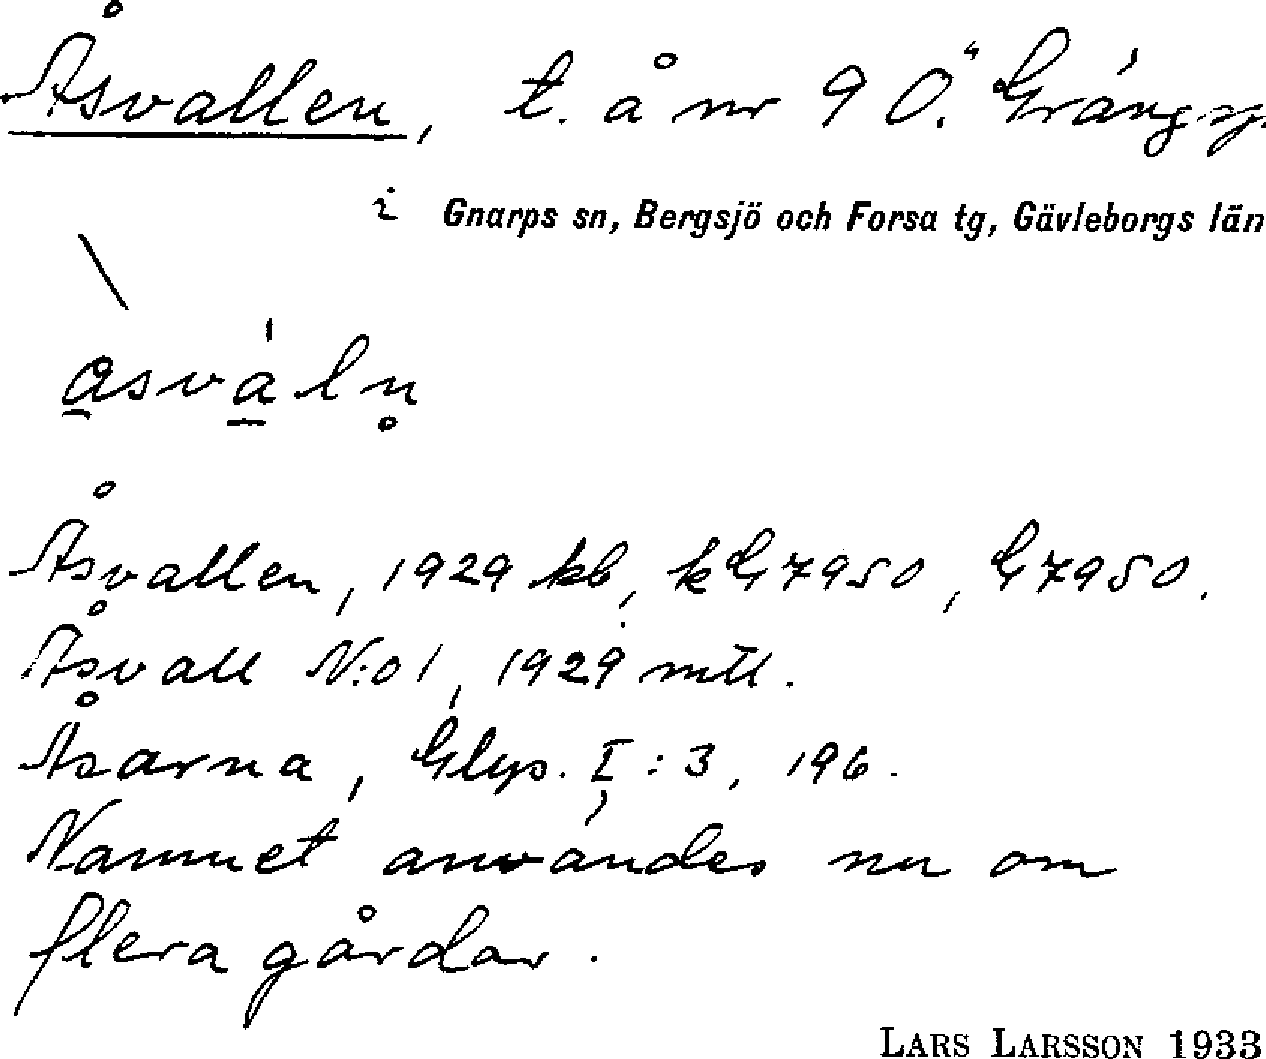 Åsvallen, t. å nr 9 Ö. Gräng
i Gnarps sn, Bergsjö och Forsa tg, Gävleborgs län
åsváln̥
Åsvallen, 1929 kb, kG7950, G7950.
Åsvall N:o 1, 1929 mtl.
Åsarna, Glys. I:3, 196.
Namnet användes nu om
flera gårdar.
LARS LARSSON 1933